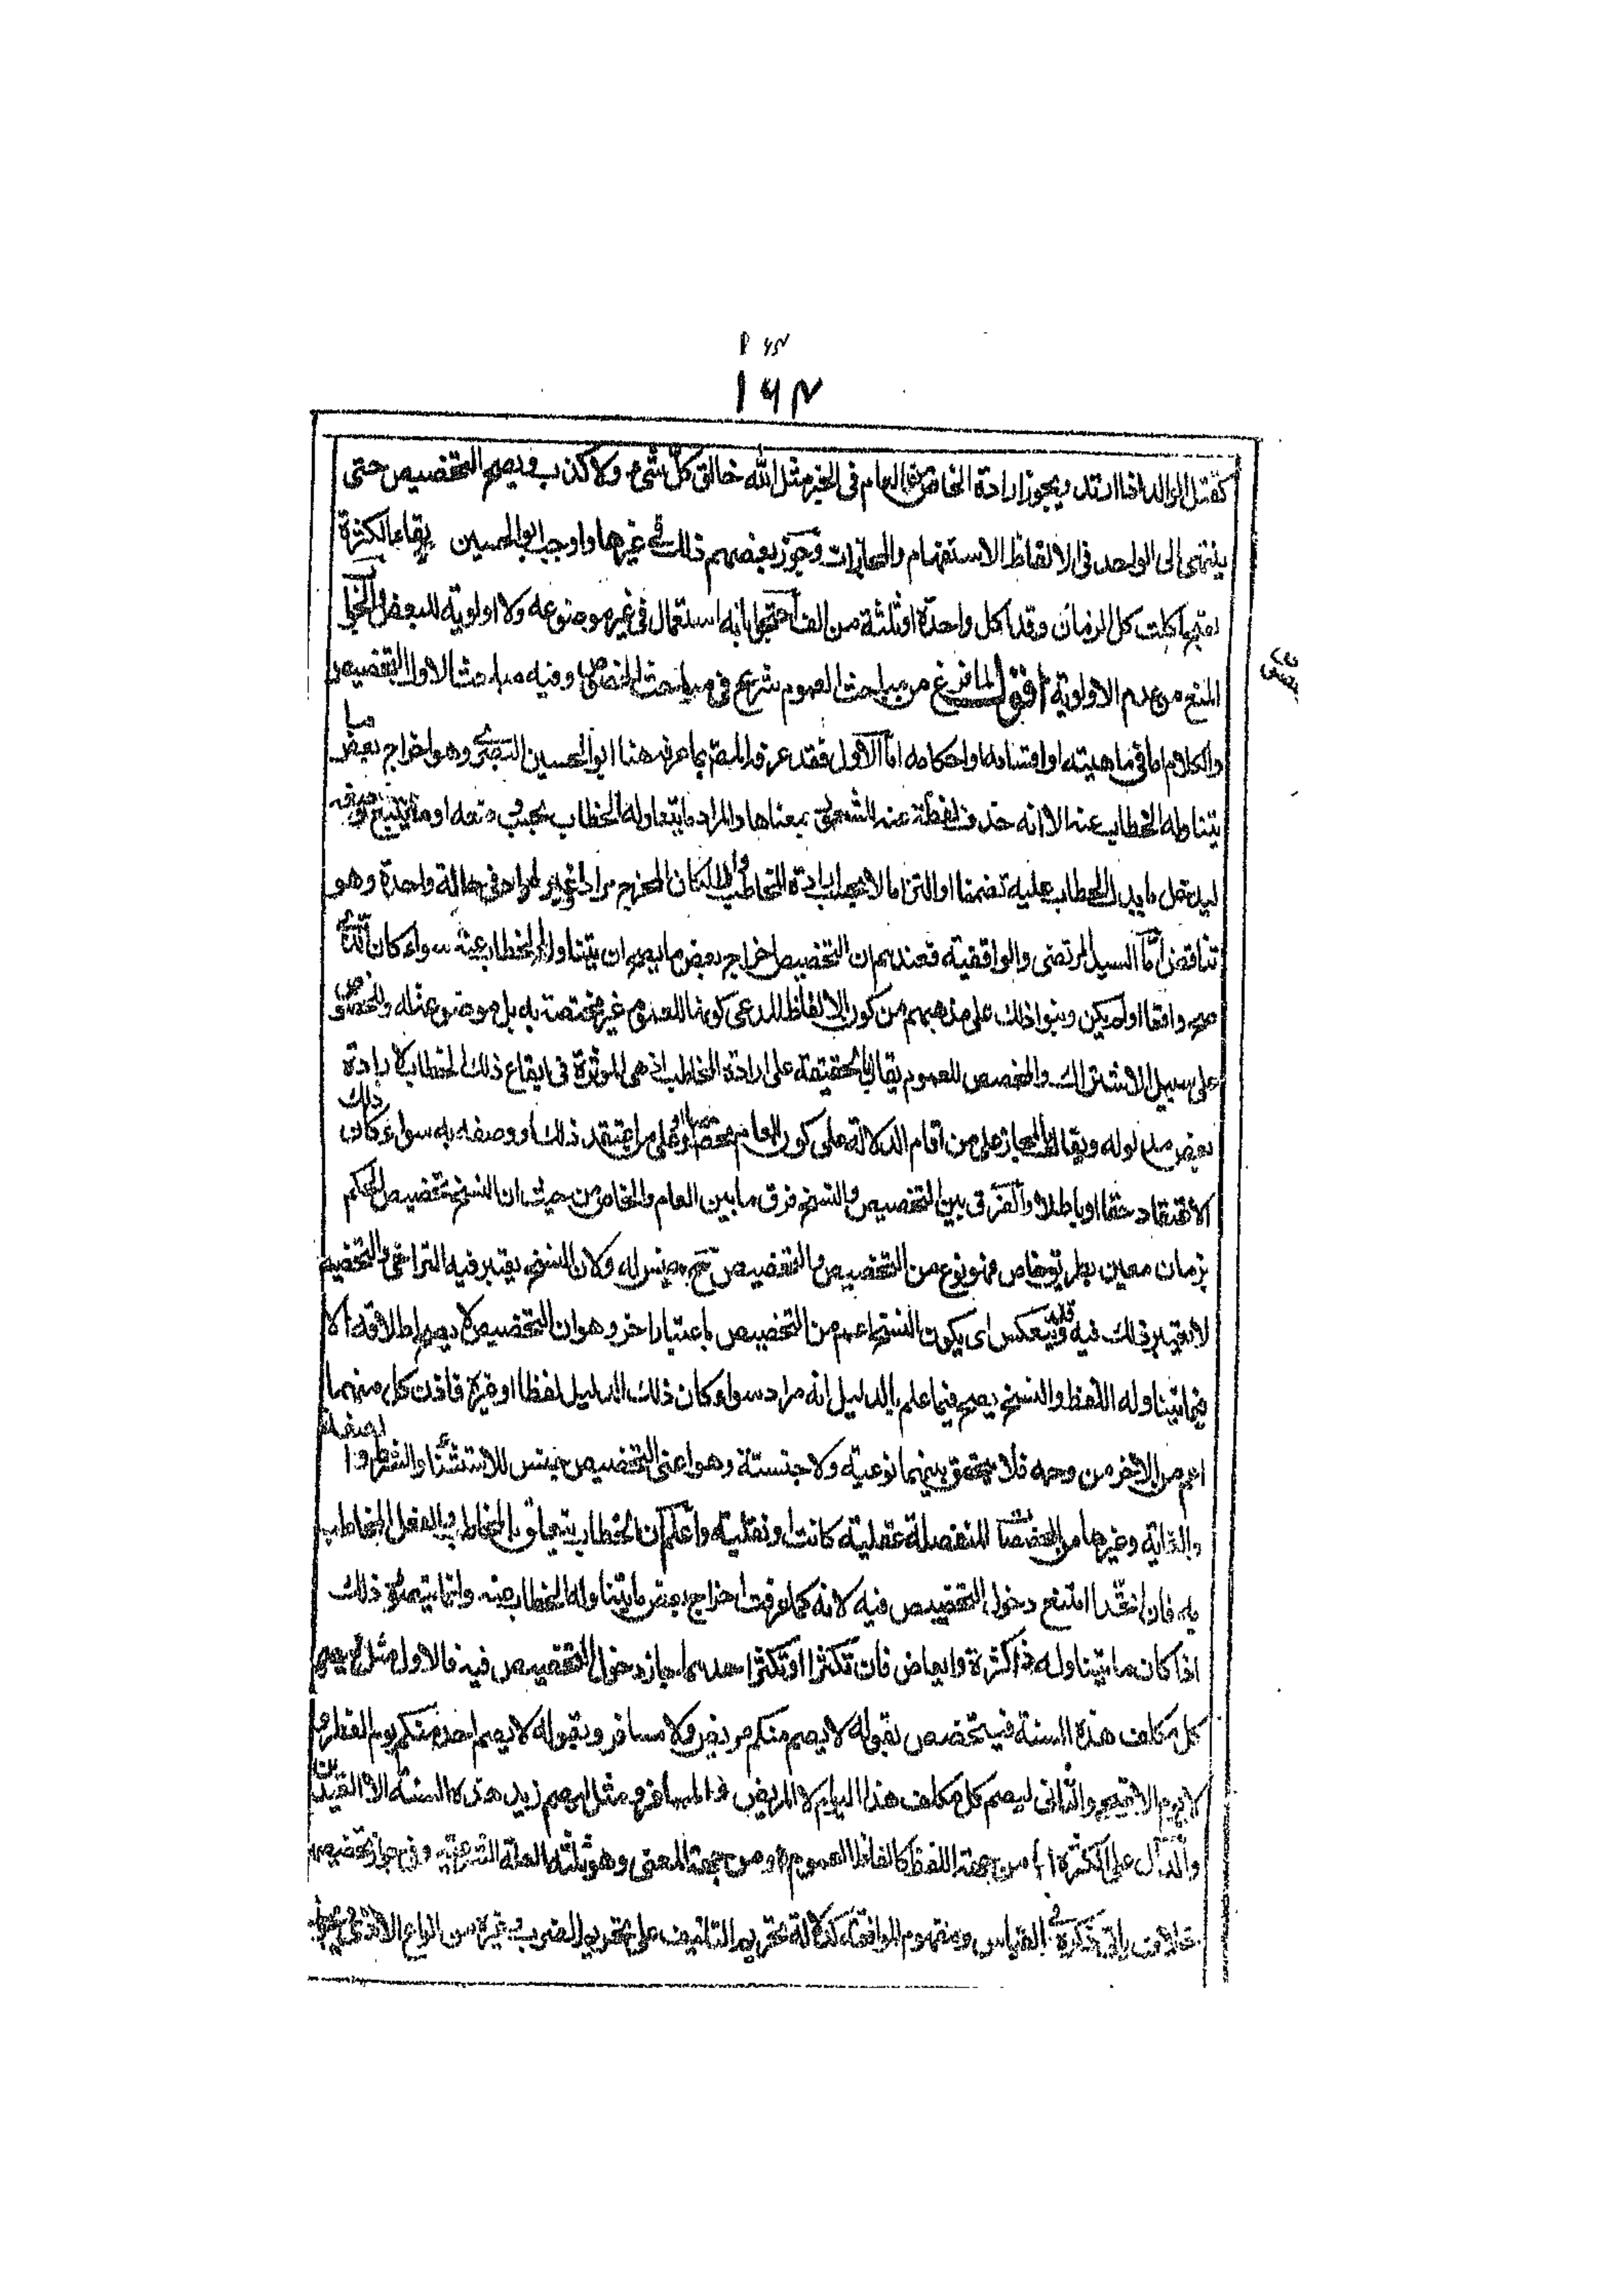 ١٦٣
١٦٣
كقتل الوالد اذا ارتد ويجوز ارادة الخاص من العام فى الخبر مثل الله خالق كل شئ ولا كذب ويصح التخصيص حتى
ينتهى الى الواحد فى الالفاظ الاستفهام والمجازات وجوز بعضهم ذلك فى غيرها واوجب ابو الحسين بقاء الكثرة
لقبح اكلت كل الرمان وقد اكل واحدة او ثلثة من الف احتجوا بانه استعمال فى غير موضوعه ولا اولوية للبعض والجواب
المنع من عدم الاولوية اقول لما فرغ من مباحث العموم شرع فى مباحث الخصوص وفيه مباحث الاول التخصيص
والكلام اما فى ماهيته او اقسامه او احكامه اما الاول فقد عرفه المصّ بما عرفه هنا ابو الحسين البصرى وهو اخراج بعض ما
يتناوله الخطاب عنه الا انه حذف لفظة عنه والمراد ما يتناوله الخطاب بحسب وضعه
ليدخل ما يدل الخطاب عليه تضمنا او التزاما لا بحسب ارادة المخاطب والا لكان المخرج مرادا غير مراد فى حالة واحدة وهو
تناقض اما السيد المرتضى والواقفية فعندهم ان التخصيص اخراج بعض ما يصح ان يتناوله الخطاب عنه سواء كان الذى
صح واقعا او لم يكن وبنوا ذلك على مذهبهم من كون الالفاظ المدعى كونها للعموم غير مختصة به بل موضوعة له وللخصوص
على سبيل الاشتراك والمخصص للعموم يقال بالحقيقة على ارادة المخاطب اذ هى المؤثرة فى ايقاع ذلك الخطاب لارادة
بعض مدلوله ويقال بالمجاز على من اقام الدلالة على كون العام مخصصا وعلى من اعتقد ذلك او وصفه به سواء كان ذلك
الاعتقاد حقا او باطلا والفرق بين التخصيص والنسخ فرق ما بين العام والخاص من حيث ان النسخ تخصيص الحكم
بزمان معين بطريق خاص فهو نوع من التخصيص والتخصيص جنس له ولان النسخ يعتبر فيه التراخى والتخصيص
لا يعتبر ذلك فيه وقد ينعكس اى يكون النسخ اعم من التخصيص باعتبار اخر وهو ان التخصيص لا يصح اطلاقه الا
فيما يتناوله اللفظ والنسخ يصح فيما علم بالدليل انه مراد سواء كان ذلك الدليل لفظا او غيره فاذن كل منهما
اعم من الاخر من وجه فلا يتحقق بينهما نوعية ولا جنسية وهو اعنى التخصيص جنس للاستثناء والشرط والصفة
والغاية وغيرها من المخصصات المنفصلة عقلية كانت او نقلية واعلم ان الخطاب يتعلق بالمخاطب والفعل المخاطب
به فان اتحدا امتنع دخول التخصيص فيه لانه كما عرفت اخراج بعض ما يتناوله الخطاب عنه وانما يتحقق ذلك
اذا كان ما يتناوله ذا كثرة وابعاض فان تكثرا او تكثر احدهما جاز دخول التخصيص فيه فالاول مثل ليصم
كل مكلف هذه السنة فيتخصص بقوله لا يصم منكم مريض ولا مسافر وبقوله لا يصم احد منكم يوم الفطر و
لا يوم الاضحى والثانى ليصم كل مكلف هذا اليوم الا المريض والمسافر ومثل ليصم زيد هذه السنة الا العيدين
والدال على الكثرة اما من جهة اللفظ كالفاظ العموم او من جهة المعنى وهو ثلثة العلة الشرعية وفى جواز تخصيصها
خلاف ياتى ذكره فى القياس ومفهوم الموافقة كدلالة تحريم التافيف على تحريم الضرب وغيره من انواع الاذى